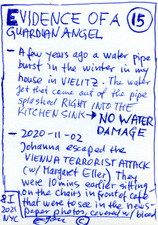 EVIDENCE OF A 15
GUARDIAN ANGEL
- A few years ago a water pipe
burst in the winter in my
house in VIELITZ. The water
jet that came out of the pipe
splashed RIGHT INTO THE
KITCHEN SINK → NO WATER
DAMAGE
- 2020-11-02
Johanna escaped the
VIENNA TERRORIST ATTACK
(w/ Margaret Eller) They
were 10 mins earlier sitting
on the chairs in front of café
that were to see in the news-
paper photos, covered w/ blood
8 I
2021
NYC